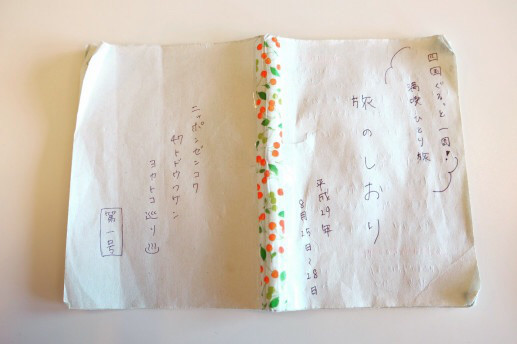 四国ぐるっと一周!
満喫ひとり旅
旅のしおり
平成29年
8月25日〜28日
ニッポンゼンコク
47トドウフケン
ヨカトコ巡り♨
第一号